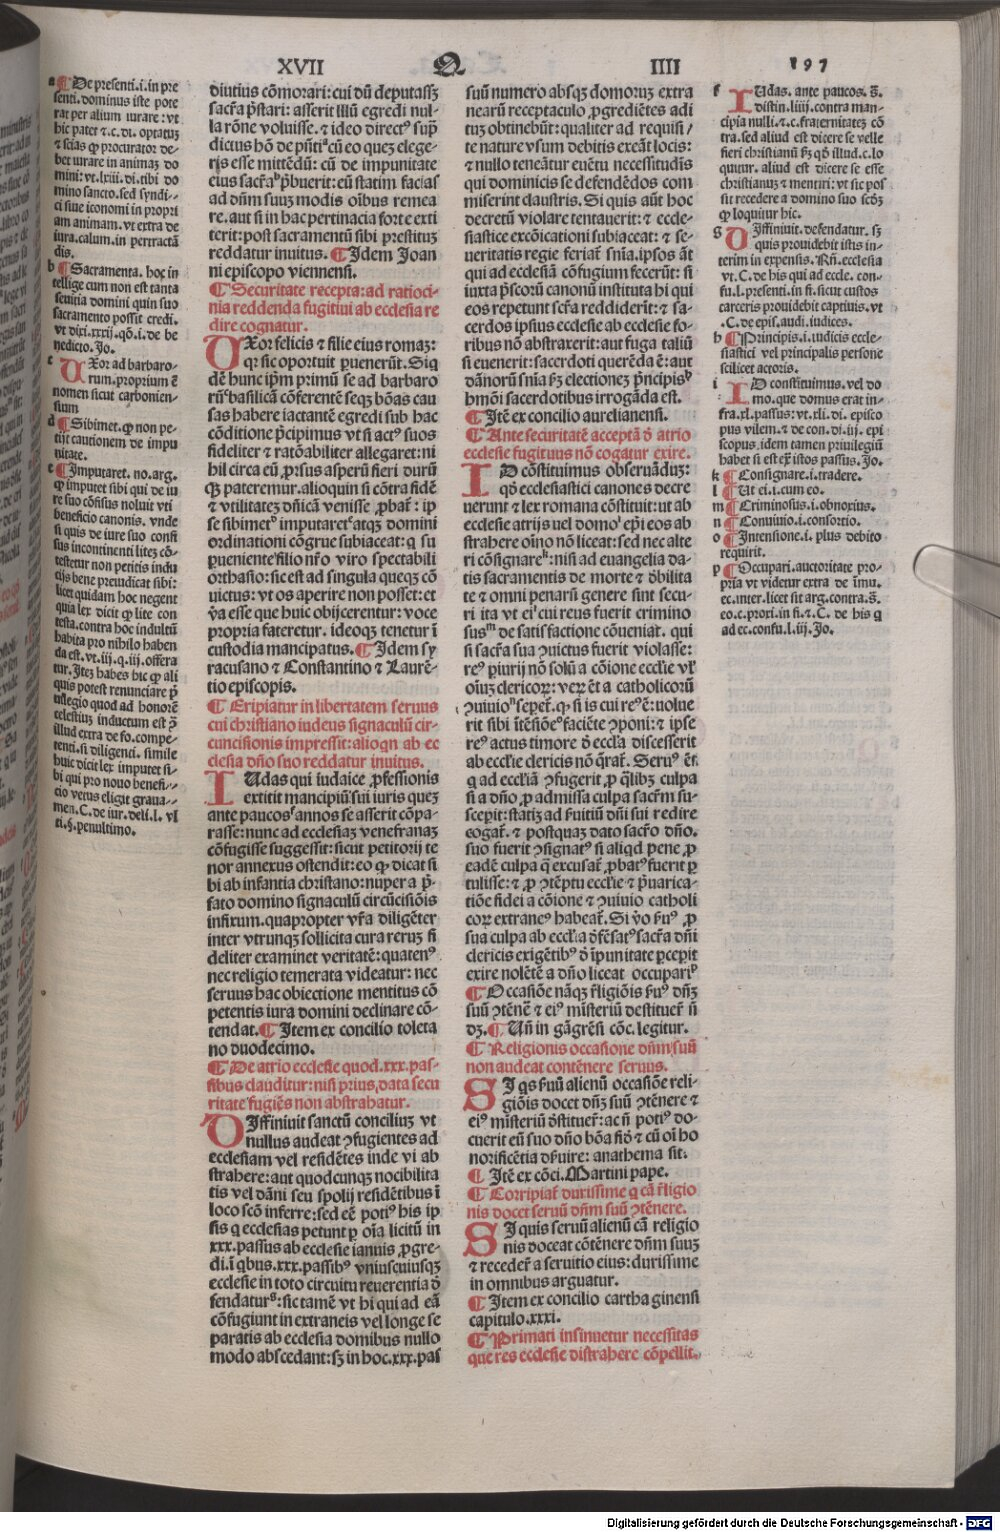 XVII Q IIII 197
a ¶ De presenti.i.in pre
senti.dominus iste pote
rat per alium iurare:vt
hic pater ⁊.c.di. optatuz
⁊ scias ꝙ procurator de-
bet iurare in animaz do
mini:vt.lxiii.di.tibi do
mino sancto.sed syndi-
ci siue iconomi in propri
am animam.vt extra de
iura.calum.in pertractã
dis.
b ¶ Sacramenta. hoc in
tellige cum non est tanta
seuitia domini quin suo
sacramento possit credi.
vt dixi.xxxij.qõ.i.de be
nedicto.Jo.
c Uxor ad barbaro-
rum.proprium ē
nomen sicut carbonien-
sium
d ¶ Sibimet.ꝙ non pe-
tijt cautionem de impu
nitate.
e ¶ Imputaret. no.arg.
ꝙ imputet sibi qui de iu
re suo cõfisus noluit vti
beneficio canonis. vnde
si quis de iure suo confi
sus incontinenti litez cõ-
testetur non petitis indu
cijs bene preiudicat sibi:
licet quidam hoc negent
quia lex dicit ꝙ lite con
testa.contra hoc indultũ
habita pro nihilo haben
da est.vt.iij.q.iij.offera
tur.Itez habes hic ꝙ ali
quis potest renunciare p̄
uilegio quod ad honorẽ
celestius inductum est ꝯ̃
illud extra de fo.compe-
tenti.si diligenci. simile
huic dicit lex imputet si-
bi qui pro nouo benefi-
cio vetus eligit graua-
men.C.de iur.deli.l. vl
ti.§.penultimo.
diutius cõmorari:cui dũ deputassꝫ
sacr̃a p̄stari: asserit illũ egredi nul-
la rõne voluisse. ⁊ ideo direct⁹ sup̃
dictus hõ de pñti⁹ cũ eo quez elege-
ris esse mittẽdũ: cũ de impunitate
eius sacr̃aᵇ p̄buerit:eũ statim facias
ad dñm suuz modis oĩbus remea
re.aut si in hac pertinacia forte exti
terit:post sacramentũ sibi prestituz
reddatur inuitus. ¶ Idem Joan
ni episcopo viennensi.
¶ Securitate recepta:ad ratioci-
nia reddenda fugitiui ab ecclesia re
dire cogatur.
UXor felicis ⁊ filie eius romaz:
qr̃ sic oportuit ꝑuenerũt. Sig
dẽ hunc ip̃m primũ se ad barbaro
rũᶜ basilicã cõferentẽ seqꝫ bõas cau
sas habere iactantẽ egredi sub hac
cõditione p̄cipimus vt si act⁹ suos
fideliter ⁊ ratõabiliter allegaret: ni
hil circa eũ ꝓrsus asperũ fieri durũ
qꝫ pateremur.alioquin si cõtra fidẽ
⁊ vtilitatez dñicã venisse ꝓbar̃: ip
se sibimetᵈ imputaretᵉ atqꝫ domini
ordinationi cõgrue subiaceat: q̃ su
ꝑueniente filio nr̃o viro spectabili
orthasio: sic est ad singula queqꝫ cõ
uictus: vt os aperire non posset: et
ṽa esse que huic obijcerentur: voce
propria fateretur. ideoqꝫ tenetur ĩ
custodia mancipatus. ¶ Idem sy
racusano ⁊ Constantino ⁊ Laurẽ-
tio episcopis.
¶ Eripiatur in libertatem seruus
cui christiano iudeus signaculũ cir-
cuncisionis impressit: alioqn̄ ab ec
clesia dño suo reddatur inuitus.
IUdas qui iudaice ꝓfessionis
extitit mancipiũ sui iuris quez
ante paucosᶠ annos se asserit cõpa-
rasse: nunc ad ecclesiaz venefranaz
cõfugisse suggessit: sicut petitorij te
nor annexus ostendit: eo ꝙ dicat si
bi ab infantia christiano: nuper a p̄-
fato domino signaculũ circũcisiõis
infixum. quapropter vr̃a diligẽter
inter vtrunqꝫ sollicita cura reruz fi
deliter examinet veritatẽ: quaten⁹
nec religio temerata videatur: nec
seruus hac obiectione mentitus cõ
petentis iura domini declinare cõ-
tendat. ¶ Item ex concilio toleta
no duodecimo.
¶ De atrio ecclesie quod.xxx.pas-
sibus clauditur: nisi prius, data secu
ritate fugiẽs non abstrahatur.
DIffiniuit sanctũ conciliuz vt
nullus audeat ꝯfugientes ad
ecclesiam vel residẽtes inde vi ab
strahere: aut quodcunqꝫ nocibilita
tis vel dãni seu spolij residẽtibus ĩ
loco scõ inferre: sed eẽ poti⁹ his ip
sis q̃ ecclesias petunt ꝑ oĩa licitũ in
xxx. passus ab ecclesie ianuis ꝓgre-
di. ĩ qbus.xxx.passib⁹ vniuscuiusqꝫ
ecclesie in toto circuitu reuerentia d̃
fendaturᵍ: sic tamẽ vt hi qui ad eã
cõfugiunt in extraneis vel longe se
paratis ab ecclesia domibus nullo
modo abscedant: sꝫ in hoc.xxx.pas
suũ numero absqꝫ domoruz extra
nearũ receptaculo ꝓgrediẽtes adi
tuz obtinebũt: qualiter ad requisi/
te nature vsum debitis exeãt locis:
⁊ nullo teneãtur euẽtu necessitudĩs
qui dominicis se defendẽdos com
miserint claustris. Si quis aũt hoc
decretũ violare tentauerit: ⁊ eccle-
siastice excõicationi subiaceat: ⁊ se-
ueritatis regie feriat̃ snĩa. ipsos ãt
qui ad ecclesiã cõfugium fecerũt: si
iuxta p̄scorũ canonũ instituta hi qui
eos repetunt scr̃a reddiderĩt: ⁊ sa-
cerdos ipsius ecclesie ab ecclesie fo-
ribus nõ abstraxerit: aut fuga taliũ
si euenerit: sacerdoti querẽda ẽ: aut
dãnorũ snĩa sꝫ electionez p̄ncipisʰ
hmõi sacerdotibus irrogãda est.
¶ Itẽ ex concilio aurelianensi.
¶ Ante securitatẽ acceptã d̃ atrio
ecclesie fugitiuus nõ cogatur exire.
ID cõstituimus obseruãduz:
qđ ecclesiastici canones decre
uerunt ⁊ lex romana cõstituit: ut ab
ecclesie atrijs uel domoⁱ ep̃i eos ab
strahere oĩno nõ liceat: sed nec alte
ri cõsignareᵏ: nisi ad euangelia da-
tis sacramentis de morte ⁊ d̃bilita
te ⁊ omni penarũ genere sint secu-
ri ita vt eiˡ cui reus fuerit crimino
susᵐ de satisfactione cõueniat. qui
si sacr̃a sua ꝯuictus fuerit violasse:
re⁹ ꝑiurij nõ solũ a cõione ecclĩe vł
oĩuz clericoꝝ: veꝝ ẽt a catholicorũ
ꝯuiuioⁿ seꝑet̃. ꝙ si is cui re⁹ ẽ: nolue
rit sibi ĩtẽsiõeᵒ faciẽte ꝯponi: ⁊ ipse
re⁹ actus timore d̃ ecclĩa discesserit
ab ecclĩe clericis nõ q̃rat̃. Seru⁹ ẽt
q̃ ad ecclĩã ꝯfugerit ꝓ q̃libꝫ culpa
si a dño ꝓ admissa culpa sacr̃m su-
sceꝑit: statiz ad ẽuitiũ dñi sui redire
cogat̃. ⁊ postquaz dato sacr̃o dño.
suo fuerit ꝯsignat⁹ si aliqd pene ꝓ
eadẽ culpa q̃ excusat̃ ꝓbat⁹ fuerit ꝑ
tulisse: ⁊ ꝓ ꝯtẽptu ecclĩe ⁊ p̄uarica-
tiõe fidei a cõione ⁊ ꝯuiuio catholi
coꝝ extrane⁹ habeat̃. Si ṽo ẽu⁹ ꝓ
sua culpa ab ecclĩa d̃fẽsat⁹ sacr̃a dñi
clericis exigẽtib⁹ d̃ ĩpunitate ꝑceꝑit
exire nolẽtẽ a dño liceat occupariᵖ
¶ Occasiõe nãqꝫ r̃ligiõis ẽu⁹ dñꝫ
suũ ꝯtẽnẽ ⁊ ei⁹ mĩsteriũ destituer̃ ñ
dꝫ. ¶ Uñ in gãgrẽsi cõc. legitur.
¶ Religionis occasione dñm suũ
non audeat contẽnere seruus.
SI qs ẽuũ alienũ occasiõe reli-
giõis docet dñꝫ suũ ꝯtẽnere ⁊
ei⁹ misteriũ d̃stituer̃: ac ñ poti⁹ do-
cuerit eũ suo dño bõa fid̃ ⁊ cũ oĩ ho
norificẽtia d̃ẽuire: anathema sit.
¶ Itẽ ex cõci. Martini pape.
¶ Corripiat̃ durissime q̃ cã r̃ligio
nis docet seruũ dñm suũ ꝯtẽnere.
SI quis seruũ alienũ cã religio
nis doceat cõtẽnere dñm suuz
⁊ receder̃ a seruitio eius: durissime
in omnibus arguatur.
¶ Item ex concilio carthaginensi
capitulo.xxxi.
¶ Primati insinuetur necessitas
que res ecclesie distrahere cõpellit.
f IUdas. ante paucos. s̄.
distin.liiij.contra man-
cipia nulli.⁊.c.fraternitatez cõ
tra.sed aliud est dicere se velle
fieri christianũ sꝫ qđ illud.c.lo
quitur. aliud est dicere se esse
christianuz ⁊ mentiri: vt sic pos
sit recedere a domino suo scđꝫ
ꝙ loquitur hic.
g DIffiniuit.defendatur. sꝫ
quis prouidebit istis in-
terim in expensis. Rñ.ecclesia
vt.C.de his qui ad eccle. con-
fu.l.presenti.in fi.sicut custos
carceris prouidebit captiuis.vt
.C.de epis.audi.iudices.
h ¶ Principis.i.iudicis eccle-
siastici vel principalis persone
scilicet actoris.
i ID constituimus. vel do
mo.que domus erat in-
fra.xl.passus: vt.xli.di. episco
pus vilem.⁊ de con.di.iij. epi
scopus.idem tamen priuilegiũ
habet si est ex̃ istos passus.Jo.
k ¶ Consignare.i.tradere.
l ¶ Ut ei.i.cum eo.
m ¶ Criminosus.i.obnoxius.
n ¶ Conuiuio.i.consortio.
o ¶ Intensione.i. plus debito
requirit.
p ¶ Occupari.auctoritate pro-
pria vt videtur extra de imu.
ec.inter.licet sit arg.contra.s̄.
eo.c.proxi.in fi.⁊.C. de his q̃
ad ec.confu.l.iij.Jo.
Digitalisierung gefördert durch die Deutsche Forschungsgemeinschaft - DFG